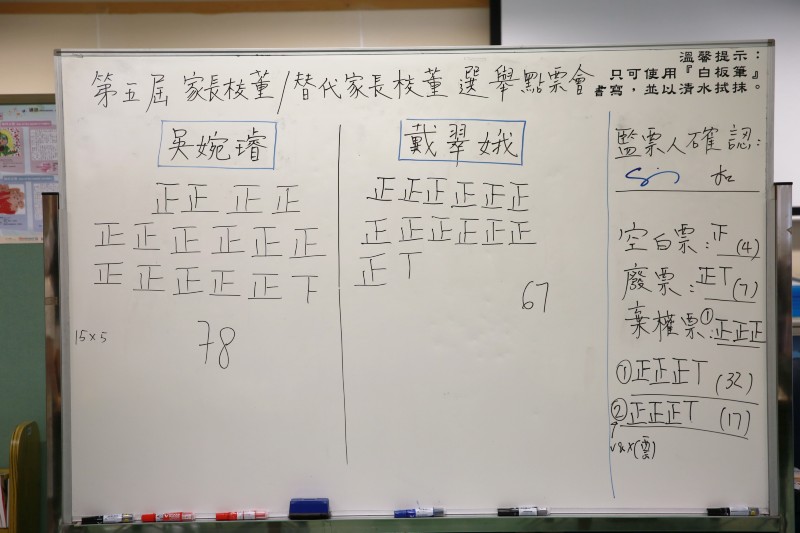 第五屆 家長校董/替代家長校董 選舉點票會
溫馨提示：
只可使用『白板筆』
書寫，並以清水拭抹。
吳婉璿
正正 正 正
正 正 正 正 正 正
正 正 正 正 正 下
15×5
78
戴翠娥
正正正正正正
正正正正正正
正丅
67
監票人確認：
空白票：正 (4)
廢票：正丅(7)
棄權票：①正正正
①正正正丅 (32)
②正正正丅 (17)